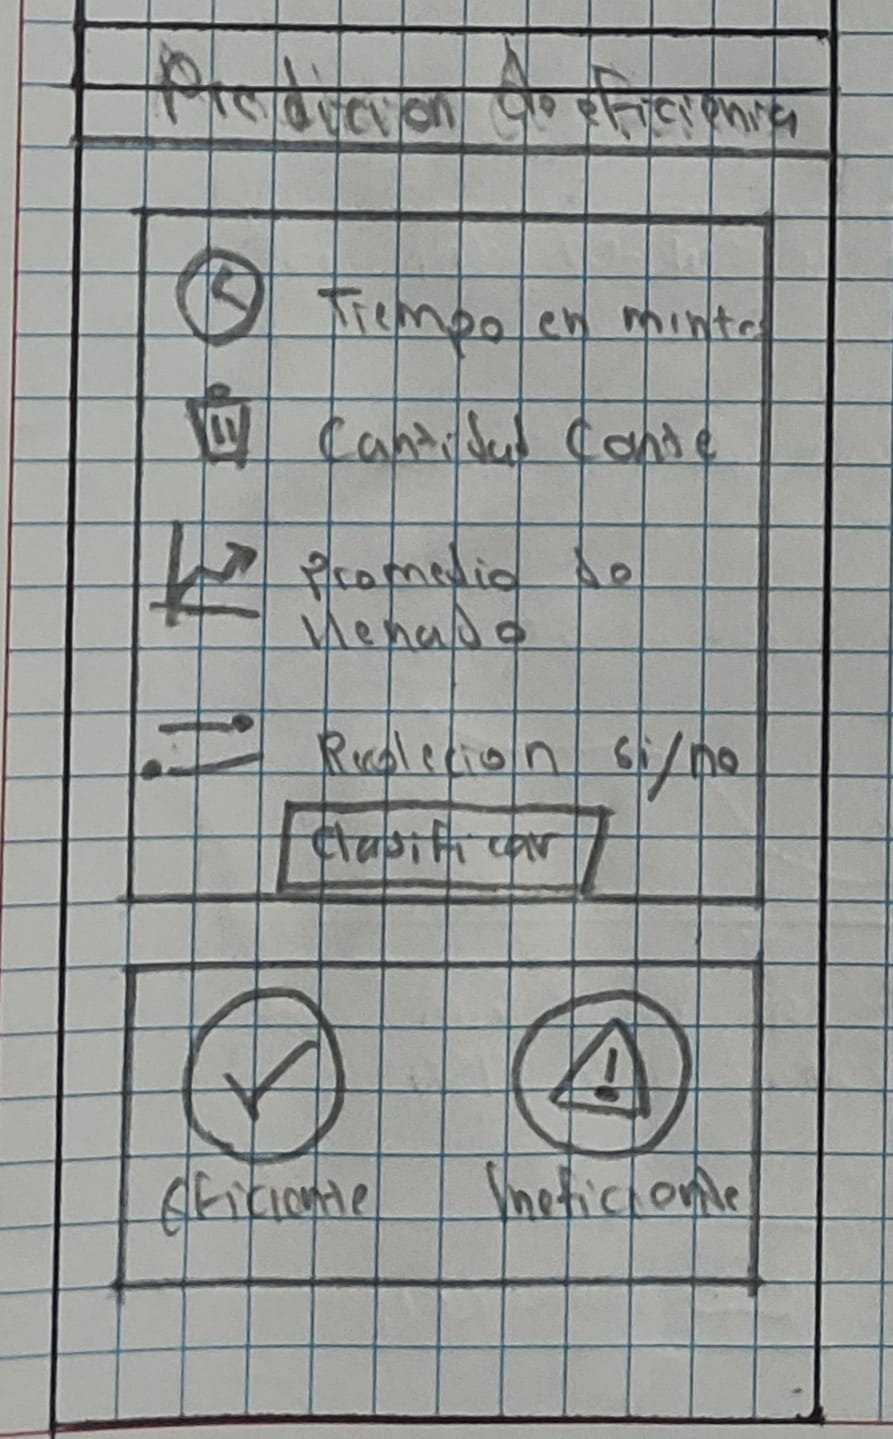 Prediccion de eficiencia
Tiempo en
Cantidad Conte
Promedio de
llenado
si/no
Clasificar
Eficiente
Ineficiente